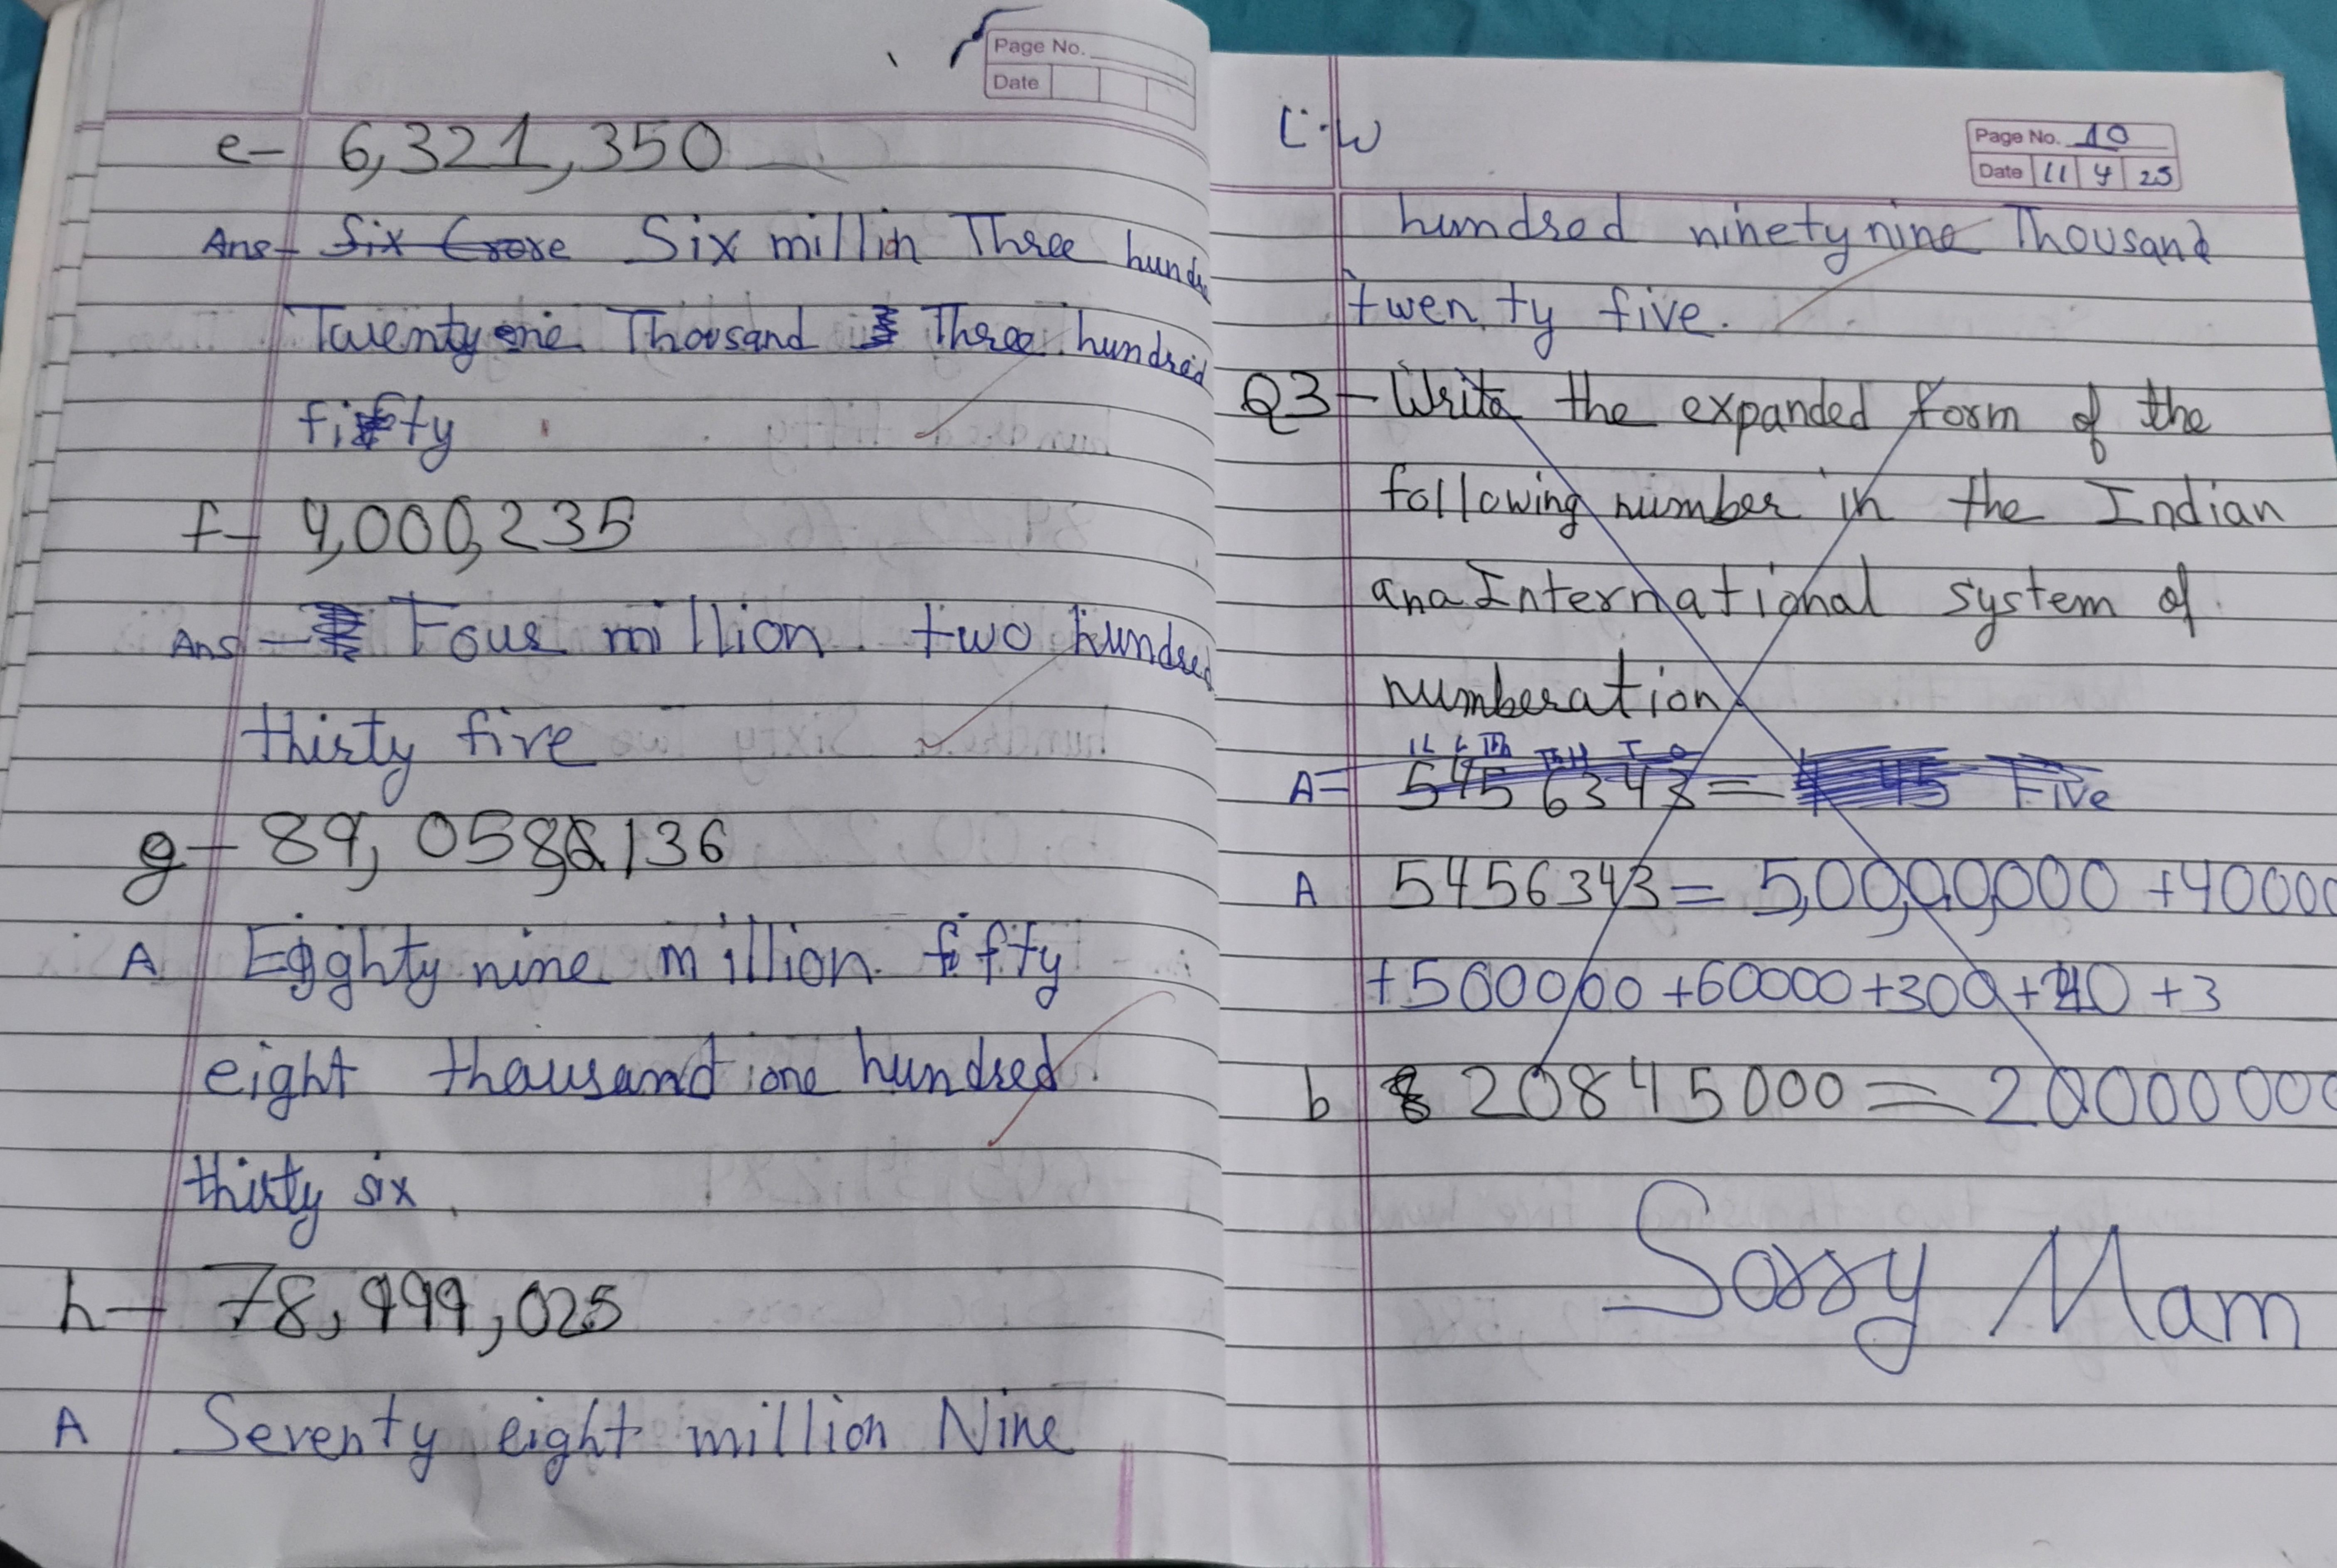 Page No.
Date
e- 6,321,350
Ans- Six Crore Six millin Three hundre
Twenty one Thousand Three hundred
fifty
f- 4,000,235
Ans - Four million two hundred
thirty five
g- 89,058,136
A Eighty nine million fifty
eight thousand one hundred
thirty six.
h- 78,999,025
A Seventy eight million Nine
C.W
Page No. 10
Date 11 4 25
hundred ninety nine Thousand
twenty five.
Q3- Write the expanded form of the
following number in the Indian
ana International system of
numberation
TL L TTh TH H T O
A= 5456343 = 45 Five
A 5456343 = 5,00,00,000 +40000
+500000 +60000 +300 +40 +3
b 20845000 = 20000000
Sorry Mam